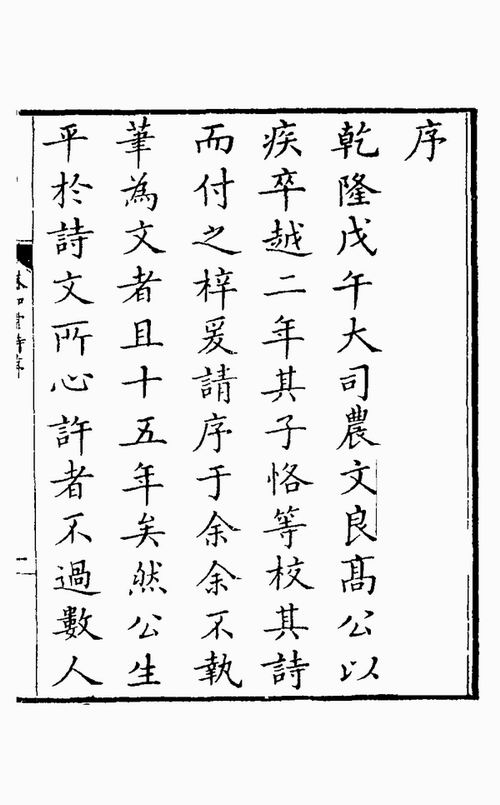 序
乾隆戊午大司農文良高公以
疾卒越二年其子恪等校其詩
而付之梓爰請序于余余不執
筆為文者且十五年矣然公生
平於詩文所心許者不過數人